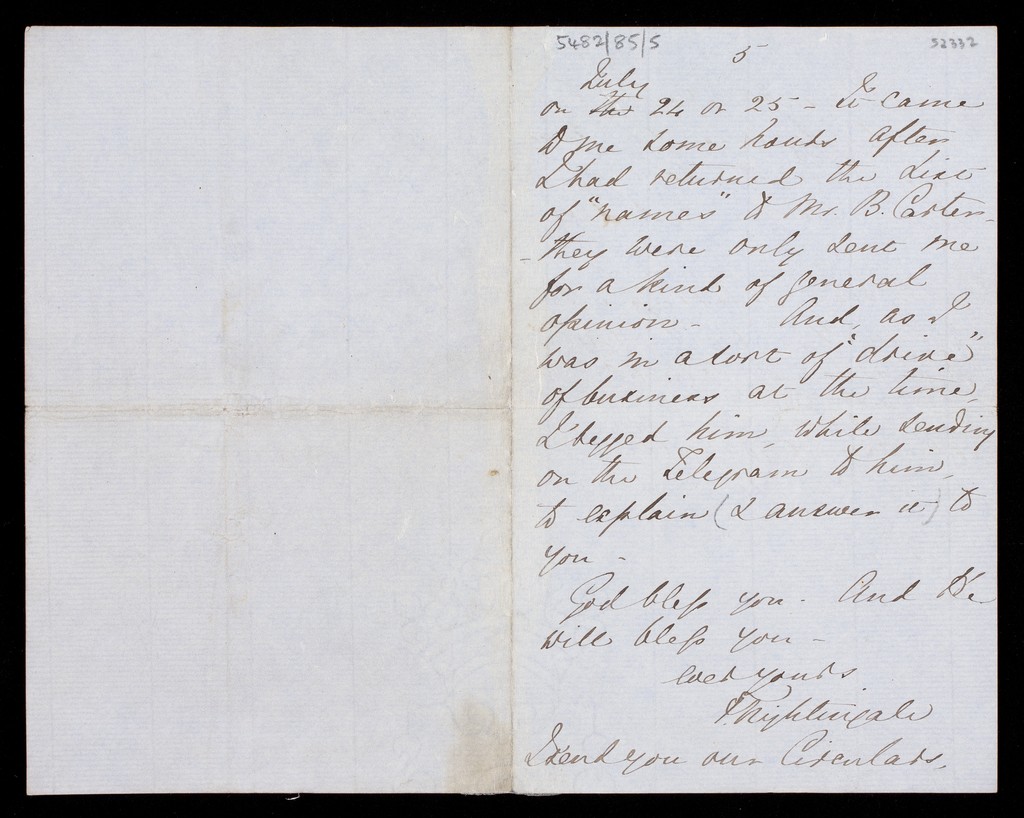 5482/85/5
52332
5
July
on the 24 or 25 - It came
to me some hours after
I had returned the List
of "names" to Mr. B. Carter -
- they were only sent me
for a kind of general
opinion - And, as I
was in a sort of "drive"
of business at the time,
I begged him, while sending
on the Telegram to him,
to explain (& answer it) to
you -
God bless you - And He
will bless you -
ever yours
F. Nightingale
I send you our Circulars.